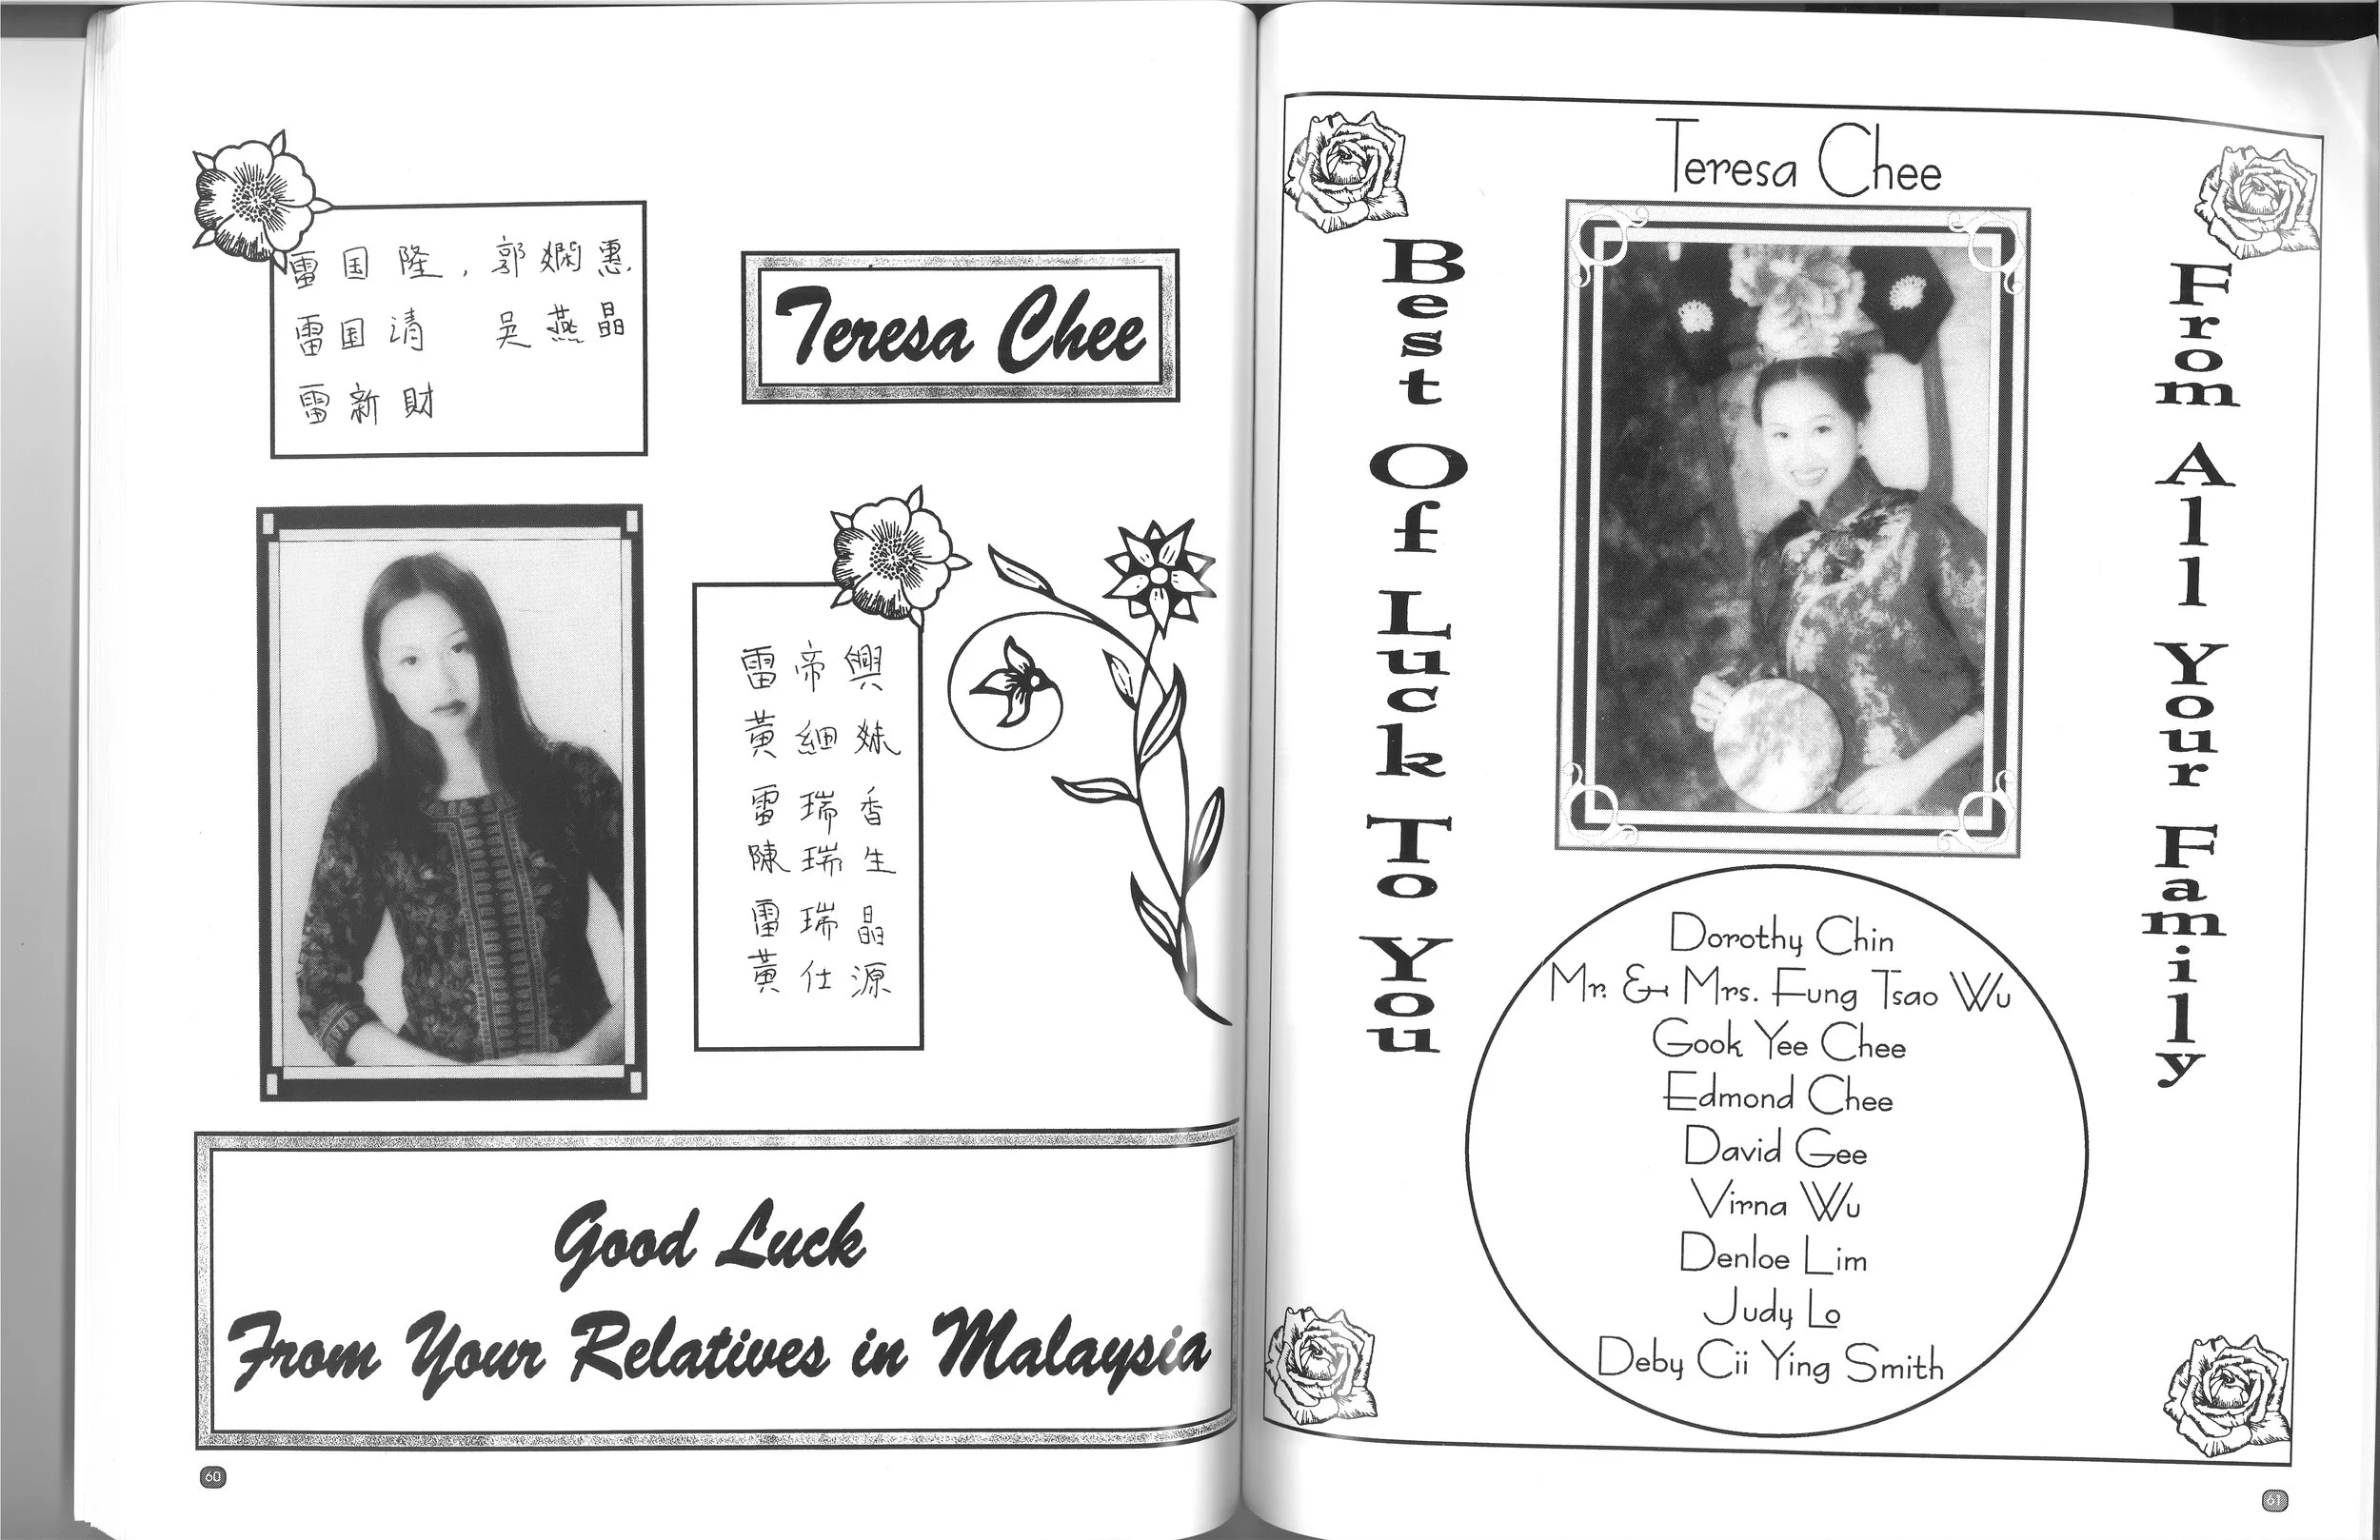 雷国隆，郭嫻惠
雷国清 吴燕晶
雷新財
Teresa Chee
雷帝興
黃細妹
雷瑞香
陳瑞生
雷瑞晶
黃仕源
Good Luck
From Your Relatives in Malaysia
60
Teresa Chee
Best Of Luck To You
From All Your Family
Dorothy Chin
Mr. & Mrs. Fung Tsao Wu
Gook Yee Chee
Edmond Chee
David Gee
Virna Wu
Denloe Lim
Judy Lo
Deby Cii Ying Smith
61